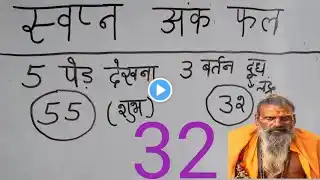 स्वप्न अंक फल
5 पेड़ देखना 3 बर्तन दूध
55 (शुभ) 32
32